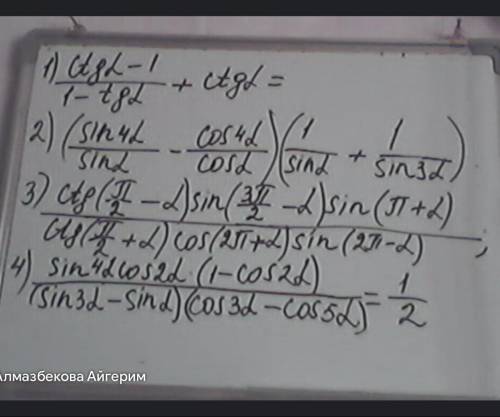 1) (ctgα - 1)/(1 - tgα) + ctgα =
2) (sin4α/sinα - cos4α/cosα)(1/sinα + 1/sin3α)
3) ctg(π/2 - α)sin(3π/2 - α)sin(π + α)/ctg(π/2 + α)cos(2π + α)sin(2π - α);
4) sin4αcos2α(1 - cos2α)/(sin3α - sinα)(cos3α - cos5α) = 1/2
Алмазбекова Айгерим